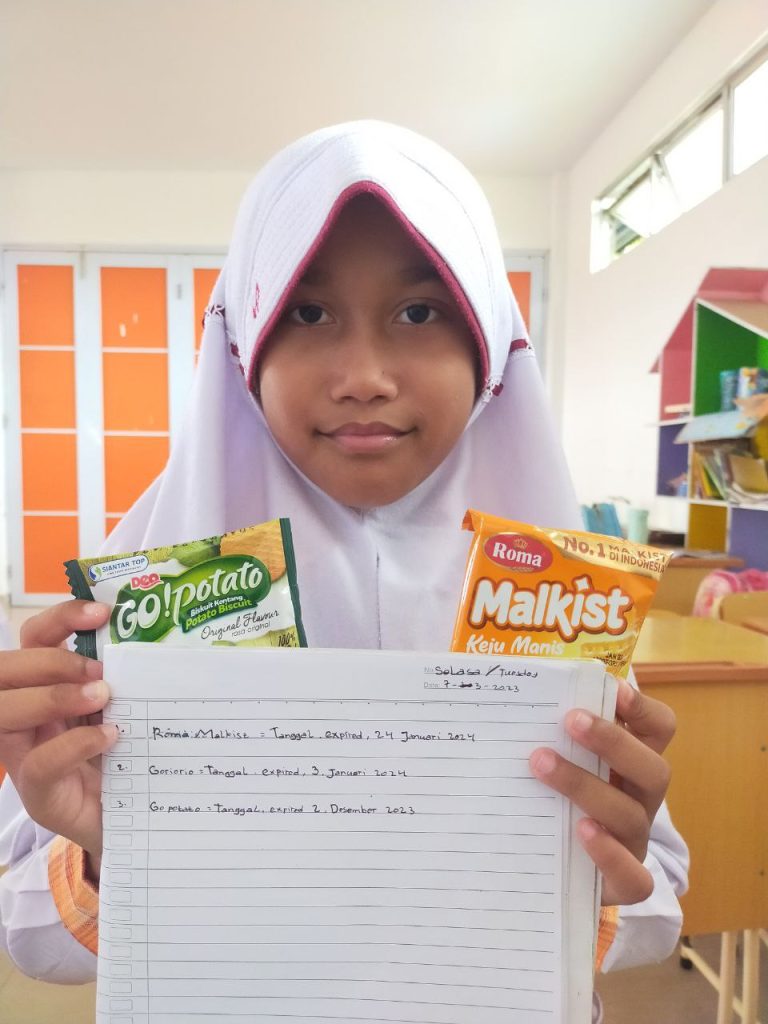 SIANTAR TOP
Deo
GO! Potato
Biskuit Kentang
Potato Biscuit
Original Flavour
rasa original
100%
Roma
No.1 MALKIST
DI INDONESIA
Malkist
Keju Manis
No: Selasa / Tuesday
Date: 7 - 3 - 2023
1. Roma Malkist = Tanggal. expired, 24 Januari 2024
2. Goriorio = Tanggal. expired, 3. Januari 2024
3. Go potato = Tanggal. expired 2. Desember 2023